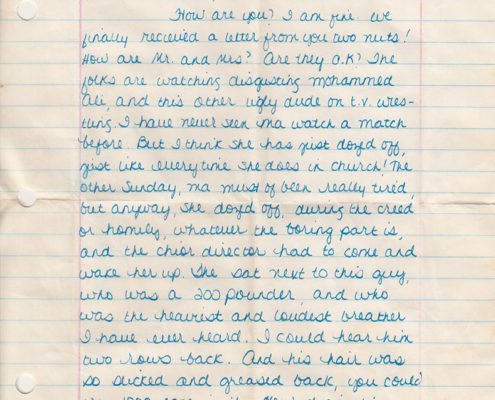 How are you? I am fine. We
finally recieved a letter from you two nuts!
How are Mr. and Mrs? Are they O.K? The
folks are watching disgusting mohammed
Ali, and this other ugly dude on t.v. wres-
tling. I have never seen ma watch a match
before. But I think she has just dozed off,
just like everytime she does in church! The
other Sunday, ma must of been really tired,
but anyway, she dozed off, during the creed
or homily, whatever the boring part is,
and the chior director had to come and
wake her up. She sat next to this guy,
who was a 200 pounder, and who
was the heaviest and loudest breather
I have ever heard. I could hear him
two rows back. And his hair was
so slicked and greased back, you could